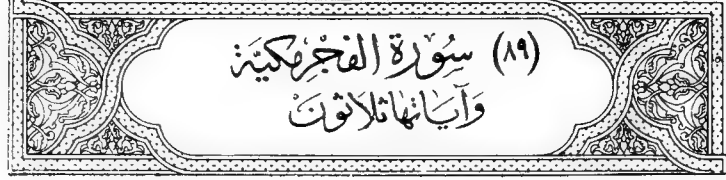 (٨٩) سُورَة الفَجْرِ مَكيَّة
وَآيَاتهَا ثَلاثُونَ